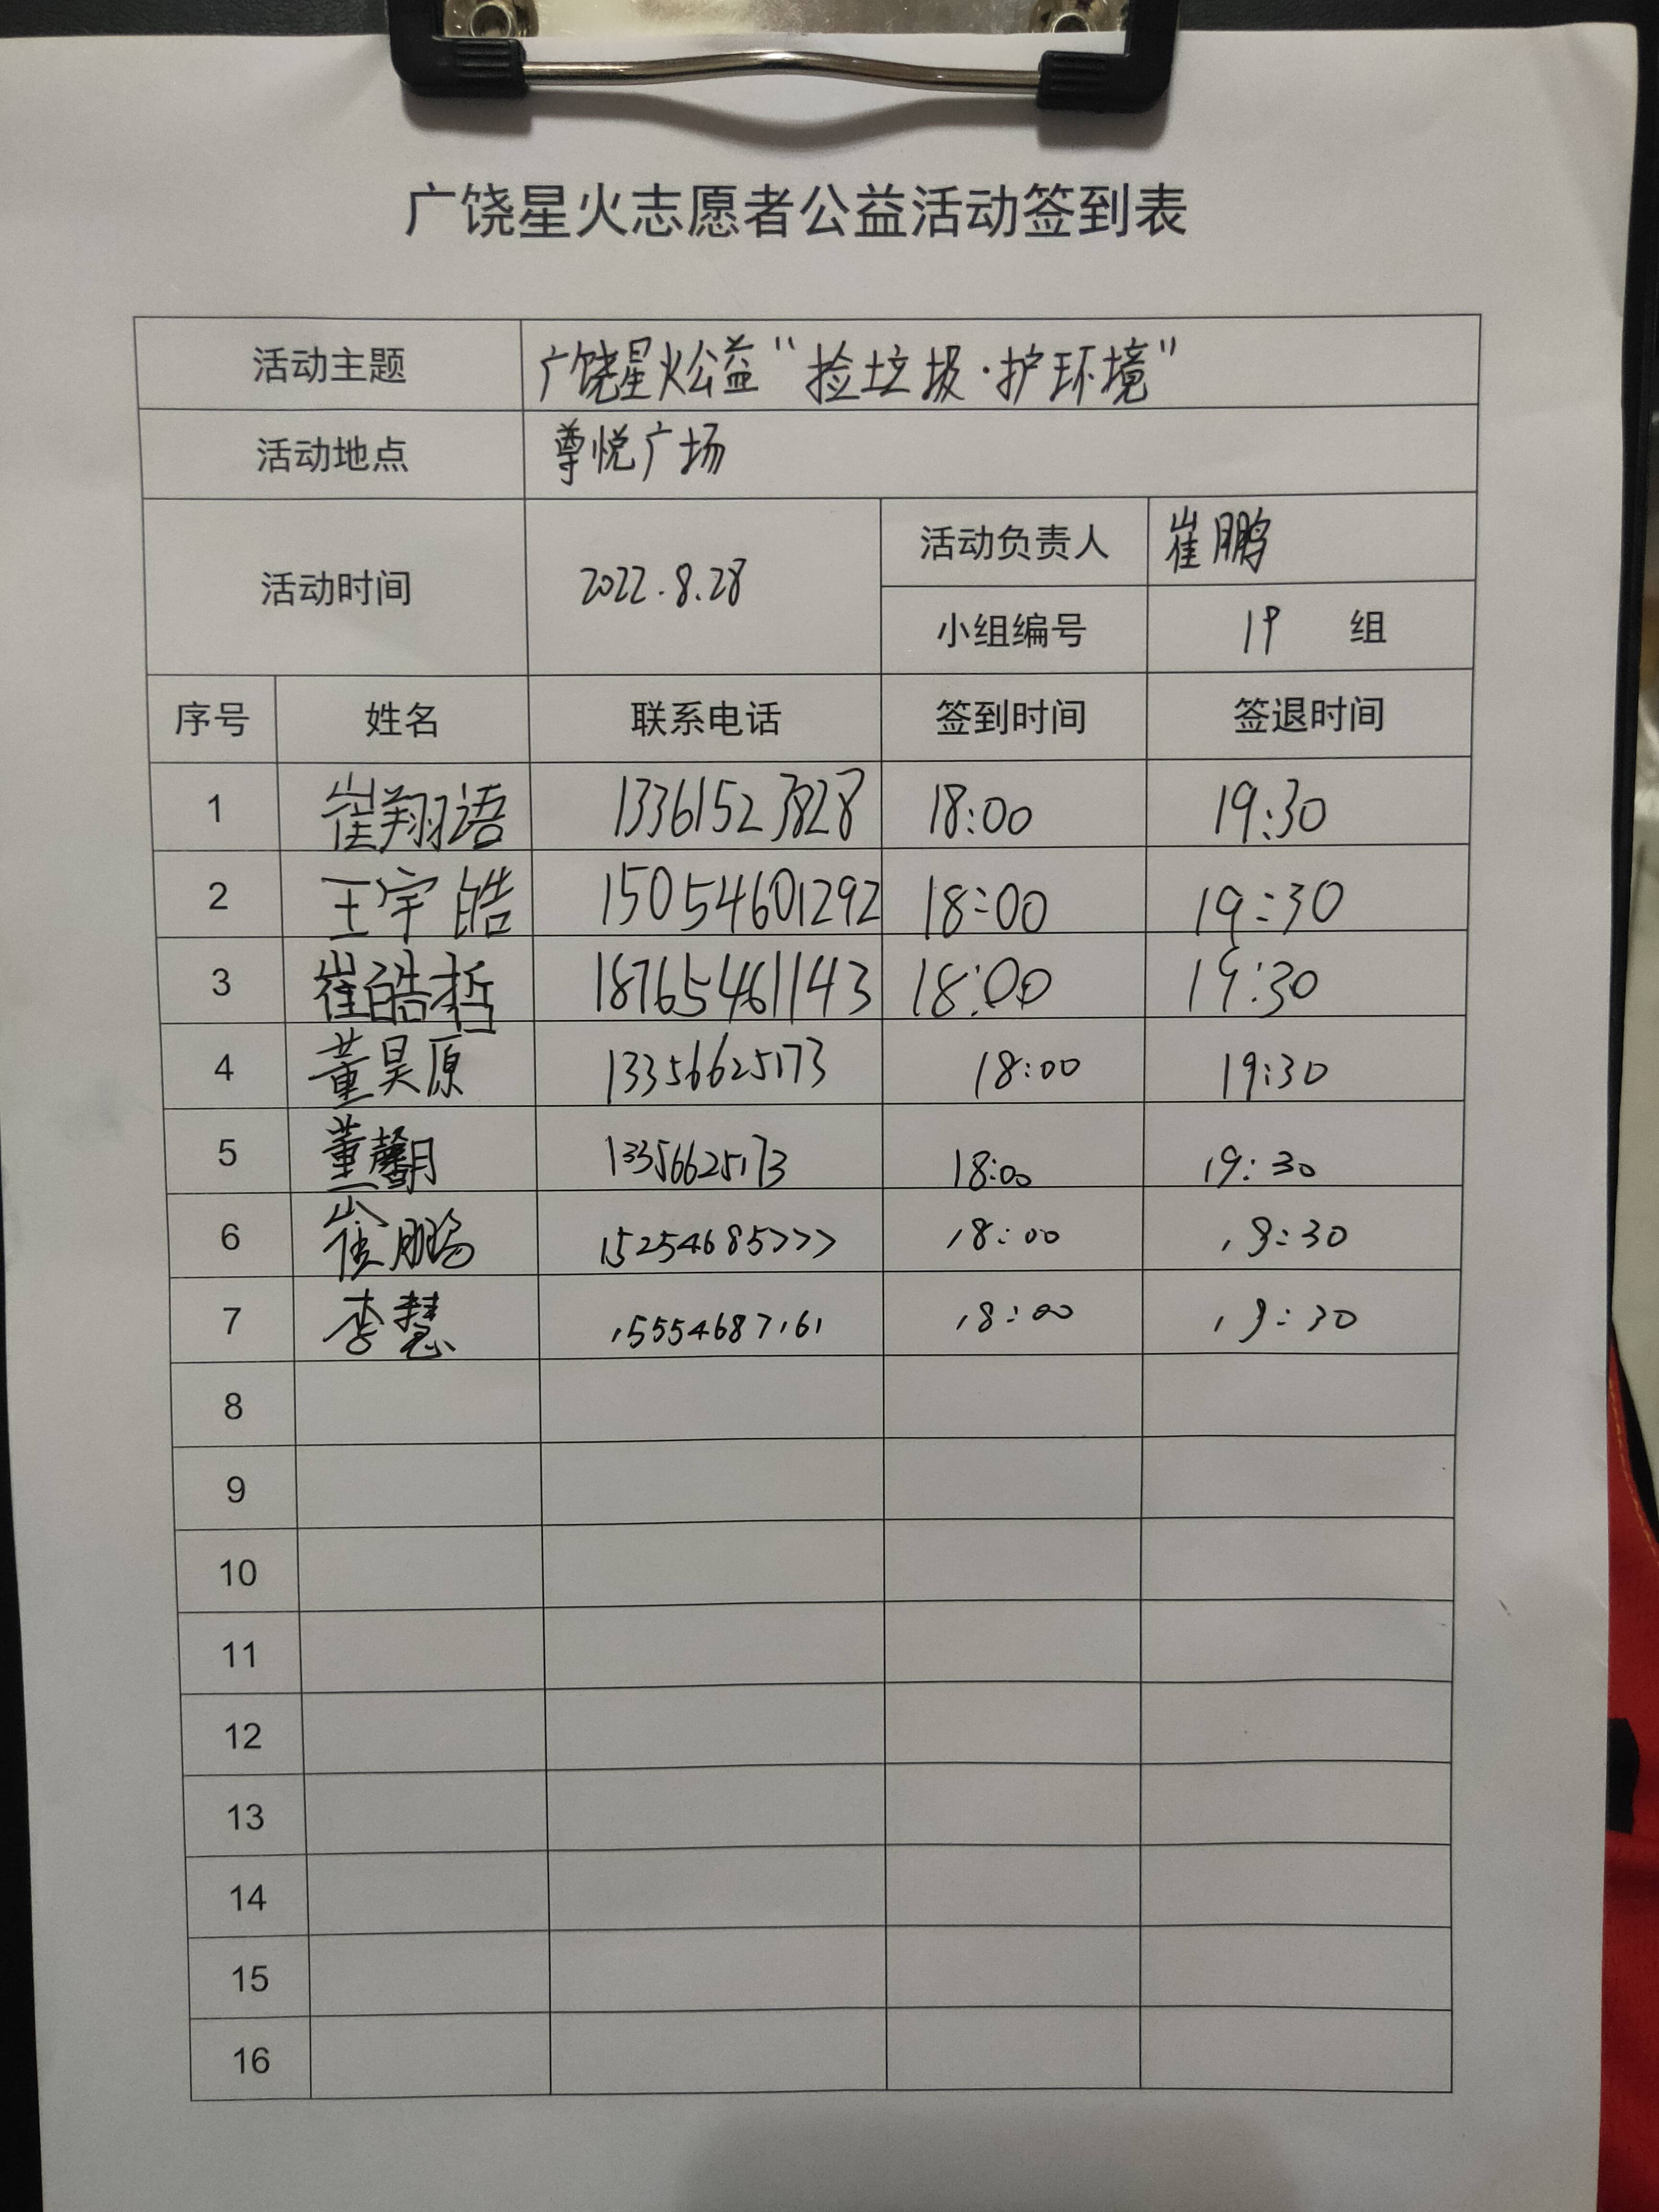 广饶星火志愿者公益活动签到表
活动主题 广饶星火公益“捡垃圾·护环境”
活动地点 尊悦广场
活动时间 2022.8.28 活动负责人 崔鹏
小组编号 19 组
序号 姓名 联系电话 签到时间 签退时间
1 崔翔语 13361523828 18:00 19:30
2 王宇皓 15054601292 18:00 19:30
3 崔皓哲 18765461143 18:00 19:30
4 董昊原 13356625173 18:00 19:30
5 董馨月 13356625173 18:00 19:30
6 崔鹏 15254685777 18:00 19:30
7 李慧 15554687161 18:00 19:30
8
9
10
11
12
13
14
15
16